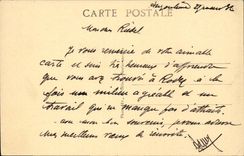 Angoulême 27 janvier 32
CARTE POSTALE
Monsieur
Je vous remercie de votre aimable
carte et suis très heureux d'apprendre
que vous avez trouvé à Rodez à la
fois un milieu agréable et un
travail qui ne manque pas d'attraits.
avec mon bon souvenir, recevez
mes meilleurs vœux de réussite.